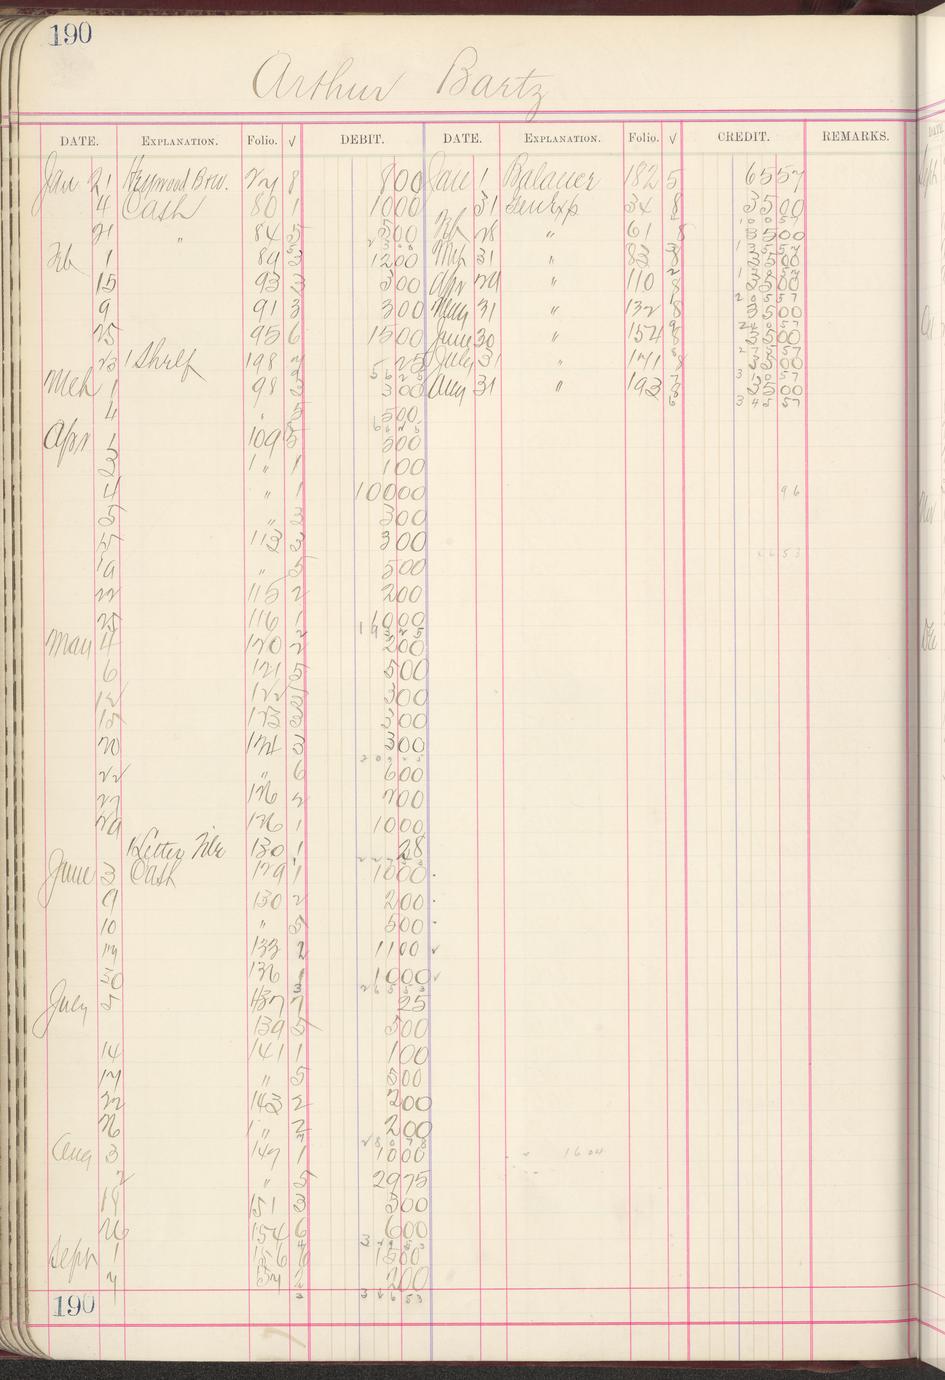 190
Arthur Bartz
DATE. EXPLANATION. Folio. √ DEBIT. DATE. EXPLANATION. Folio. √ CREDIT. REMARKS.
Jan 21 Heywood Bow. 27 8 8 00 Jan 1 Balance 182 5 65 57
4 Cash 80 1 10 00 31 Gen Exp 34 8 35 00
21 " 84 5 5 00 Feb 28 " 61 8 35 00
Feb 1 89 3 12 00 Mch 31 " 83 8 35 00
15 93 3 3 00 Apr 29 " 110 8 35 00
9 91 3 3 00 May 31 " 132 8 35 00
25 95 6 15 00 June 30 " 154 8 35 00
23 1 Shelf 198 7 25 July 31 " 171 8 35 00
Mch 1 98 3 3 00 Aug 31 " 193 8 35 00
3 45 57
4 " 5 5 00
Apr 1 109 5 5 00
3 " 1 1 00
4 " 1 100 00
96
5 " 3 3 00
15 113 3 3 00
19 " 5 5 00
22 115 2 2 00
25 116 1 10 00
1 93 25
May 4 120 2 2 00
6 121 5 5 00
12 122 3 3 00
15 123 3 3 00
20 124 3 3 00
22 " 6 6 00
27 126 7 7 00
29 126 1 10 00
1 Letter File 130 1 28
June 3 Cash 129 1 10 00
9 130 2 2 00
10 " 5 5 00
17 133 2 11 00
30 136 1 10 00
2 65 53
July 5 137 7 25
139 5 5 00
14 141 1 1 00
17 " 5 5 00
22 143 2 2 00
26 " 2 2 00
2 80 78
Aug 3 147 1 10 00
16 04
" 5 29 75
18 151 3 3 00
26 154 6 6 00
Sept 1 156 6 15 00
7 157 2 2 00
190
3 46 53